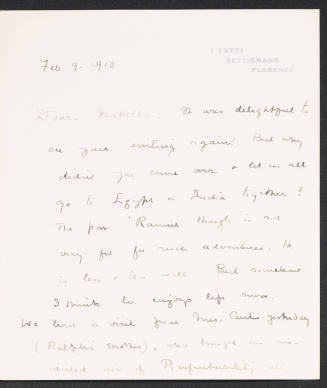 I TATTI
SETTIGNANO
FLORENCE
Feb. 9 - 1913
Dear Isabella - It was delightful to
see your writing again! But why
didn't you come over & let us all
go to Egypt or India together?
The poor though is not
very fit for such adventures. He
is less & less well. But somehow
I think he enjoys life more.
We had a visit from Mrs. Curtis yesterday
(Ralph's mother), who brought an
air of Respectability